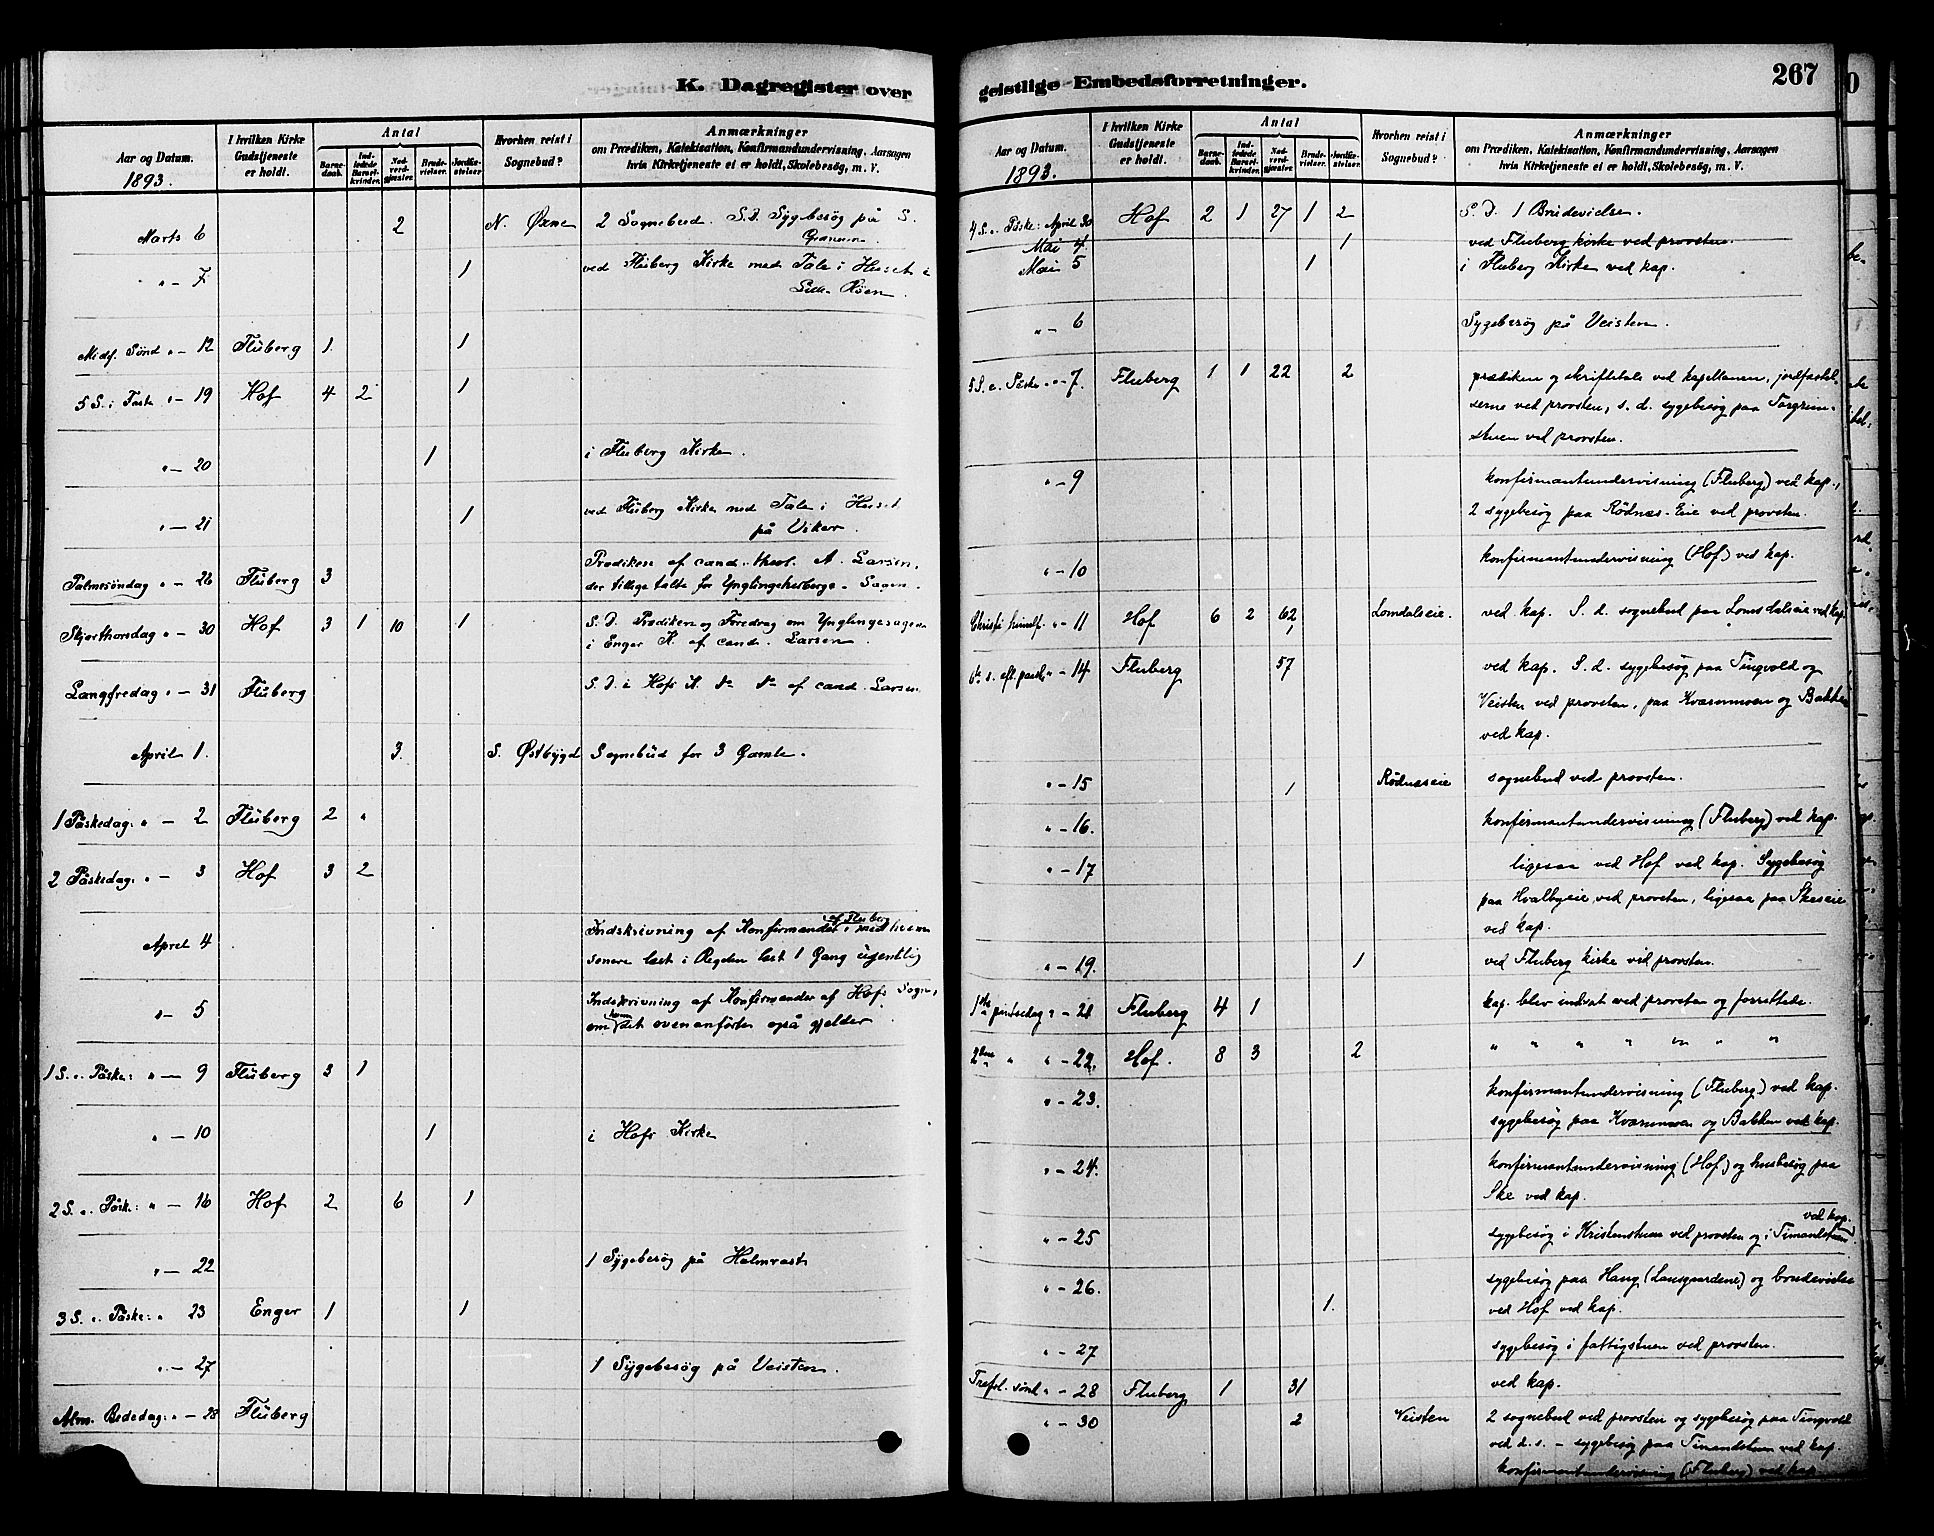 K. Dagregister over
Aar og Datum. 1893.
I hvilken Kirke Gudstjeneste er holdt.
Antal
Barnedaab. Indledede Barselkvinder. Nadverdgjæster. Brudevielser. Jordfæstelser
Hvorhen reist i Sognebud?
Anmærkninger
om Prædiken, Katekisation, Konfirmandundervisning, Aarsagen
hvis Kirketjeneste ei er holdt, Skolebesøg, m. V.
Marts 6 2 N. Øxne 2 Sognebud. S.D. Sygebesøg på S.
" - 7 1 ved Fluberg Kirke med Tale i Huset i
Midf. Sønd " - 12 Fluberg 1 1
5 S. i Faste " - 19 Hof 4 2 1
" - 20 1 i Fluberg Kirke.
" - 21 1 ved Fluberg Kirke med Tale i Huset
på Viker.
Palmesøndag " - 26 Fluberg 3 Prædiken af cand. theol. A. Larsen,
der tillige talte for Ynglingeherberge-Sagen.
Skjærthorsdag " - 30 Hof 3 1 10 1 S.D. Prædiken og Foredrag om Ynglingesagen
i Enger K. af cand. Larsen
Langfredag " - 31 Fluberg S.D. i Hofs K. do do af cand. Larsen
April 1. 3. S. Østbygd Sognebud for 3 Gamle.
1 Påskedag: " - 2 Fluberg 2 "
2 Påskedag: " - 3 Hof 3 2
April 4 Indskrivning af Konfirmander af Fluberg,
sonere læst i Regelen læst 1 Gang ugentlig
" - 5 Indskrivning af Konfirmander af Hofs Sogn,
om hvem det ovenanførte også gjelder.
1 S. e. Påske: " - 9 Fluberg 3 1
" - 10 1 i Hofs Kirke
2 S. e. Påsk: " - 16 Hof 2 6 1
" - 22 1 Sygebesøg på Halmrast
3 S. e. Påske: " 23 Enger 1 1
" - 27 1 Sygebesøg på Veisten.
Alm. Bededag: " - 28 Fluberg
geistlige Embedsforretninger.
267
Aar og Datum. 1893.
I hvilken Kirke Gudstjeneste er holdt.
Antal
Barnedaab. Indledede Barselkvinder. Nadverdgjæster. Brudevielser. Jordfæstelser
Hvorhen reist i Sognebud?
Anmærkninger
om Prædiken, Katekisation, Konfirmandundervisning, Aarsagen
hvis Kirketjeneste ei er holdt, Skolebesøg, m. V.
4 S. e. Påske: April 30 Hof 2 1 27 1 2 S.D. 1 Brudevielse.
Mai 4 1 ved Fluberg kirke ved provsten.
Mai 5 1 i Fluberg Kirke ved kap.
" - 6 Sygebesøg på Veisten.
5 S. e. Påske " - 7. Fluberg 1 1 22 2 prædiken og skriftetale ved kapellanen, jordfæstel-
serne ved provsten, s. d. sygebesøg paa Torgrim-
stuen ved provsten.
" - 9 konfirmantundervisning (Fluberg) ved kap.,
2 sygebesøg paa Rødnæs-Eie ved provsten.
" - 10 konfirmantundervisning (Hof) ved kap.
Christi himmelf. " - 11 Hof 6 2 62 1 Lomdalseie. ved kap. S. d. sognebud paa Lomsdalseie ved kap
6te s. eft. paask. " - 14 Fluberg 57 ved kap. S. d. sygebesøg paa Tingvold og
Veisten ved provsten, paa Kværnmoen og Bakken
ved kap.
" - 15 1 Rødnæseie sognebud ved provsten.
" - 16. konfirmantundervisning (Fluberg) ved kap.
" - 17 ligesaa ved Hof ved kap. Sygebesøg
paa Hvalbyeie ved provsten, ligesaa paa Skeseie
ved kap.
" - 19. 1 ved Fluberg kirke ved provsten.
1ste pintsedag " - 21 Fluberg 4 1 kap. blev indsat ved provsten og forrettede.
2den " " - 22. Hof. 8 3 2 " " " " " " "
" - 23. konfirmantundervisning (Fluberg) ved kap.
sygebesøg paa Kværnmoen og Bakken ved kap.
" - 24. konfirmantundervisning (Hof) og husbesøg paa
Ske ved kap.
" - 25 sygebesøg i Kristenstuen ved provsten og i Timandstuen ved kap.
" - 26. 1. sygebesøg paa Haug (Lansgaardene) og brudevielse
ved Hof ved kap.
" - 27 sygebesøg i fattigstuen ved provsten.
Trefol. sønd " - 28 Fluberg 1 31 ved kap.
" - 30 2 Veisten 2 sognebud ved provsten og sygebesøg paa Tingvold
ved d. s. - sygebesøg paa Timandstuen ved kap.
konfirmantundervisning (Fluberg) ved kap.